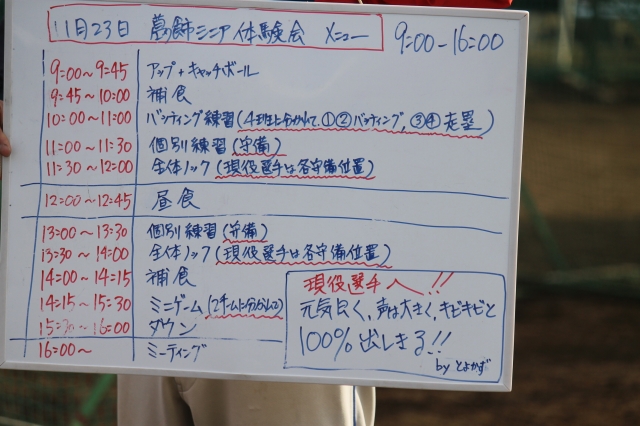 11月23日 葛飾シニア体験会 メニュー 9:00-16:00
9:00~9:45 アップ+キャッチボール
9:45~10:00 補食
10:00~11:00 バッティング練習(4班に分かれて、①②バッティング、③④走塁)
11:00~11:30 個別練習(守備)
11:30~12:00 全体ノック(現役選手は各守備位置)
12:00~12:45 昼食
13:00~13:30 個別練習(守備)
13:30~14:00 全体ノック(現役選手は各守備位置)
14:00~14:15 補食
14:15~15:30 ミニゲーム(2チームに分かれて)
15:30~16:00 ダウン
16:00~ ミーティング
現役選手へ!!
元気良く、声は大きく、キビキビと
100%出しきる!!
by とよかず